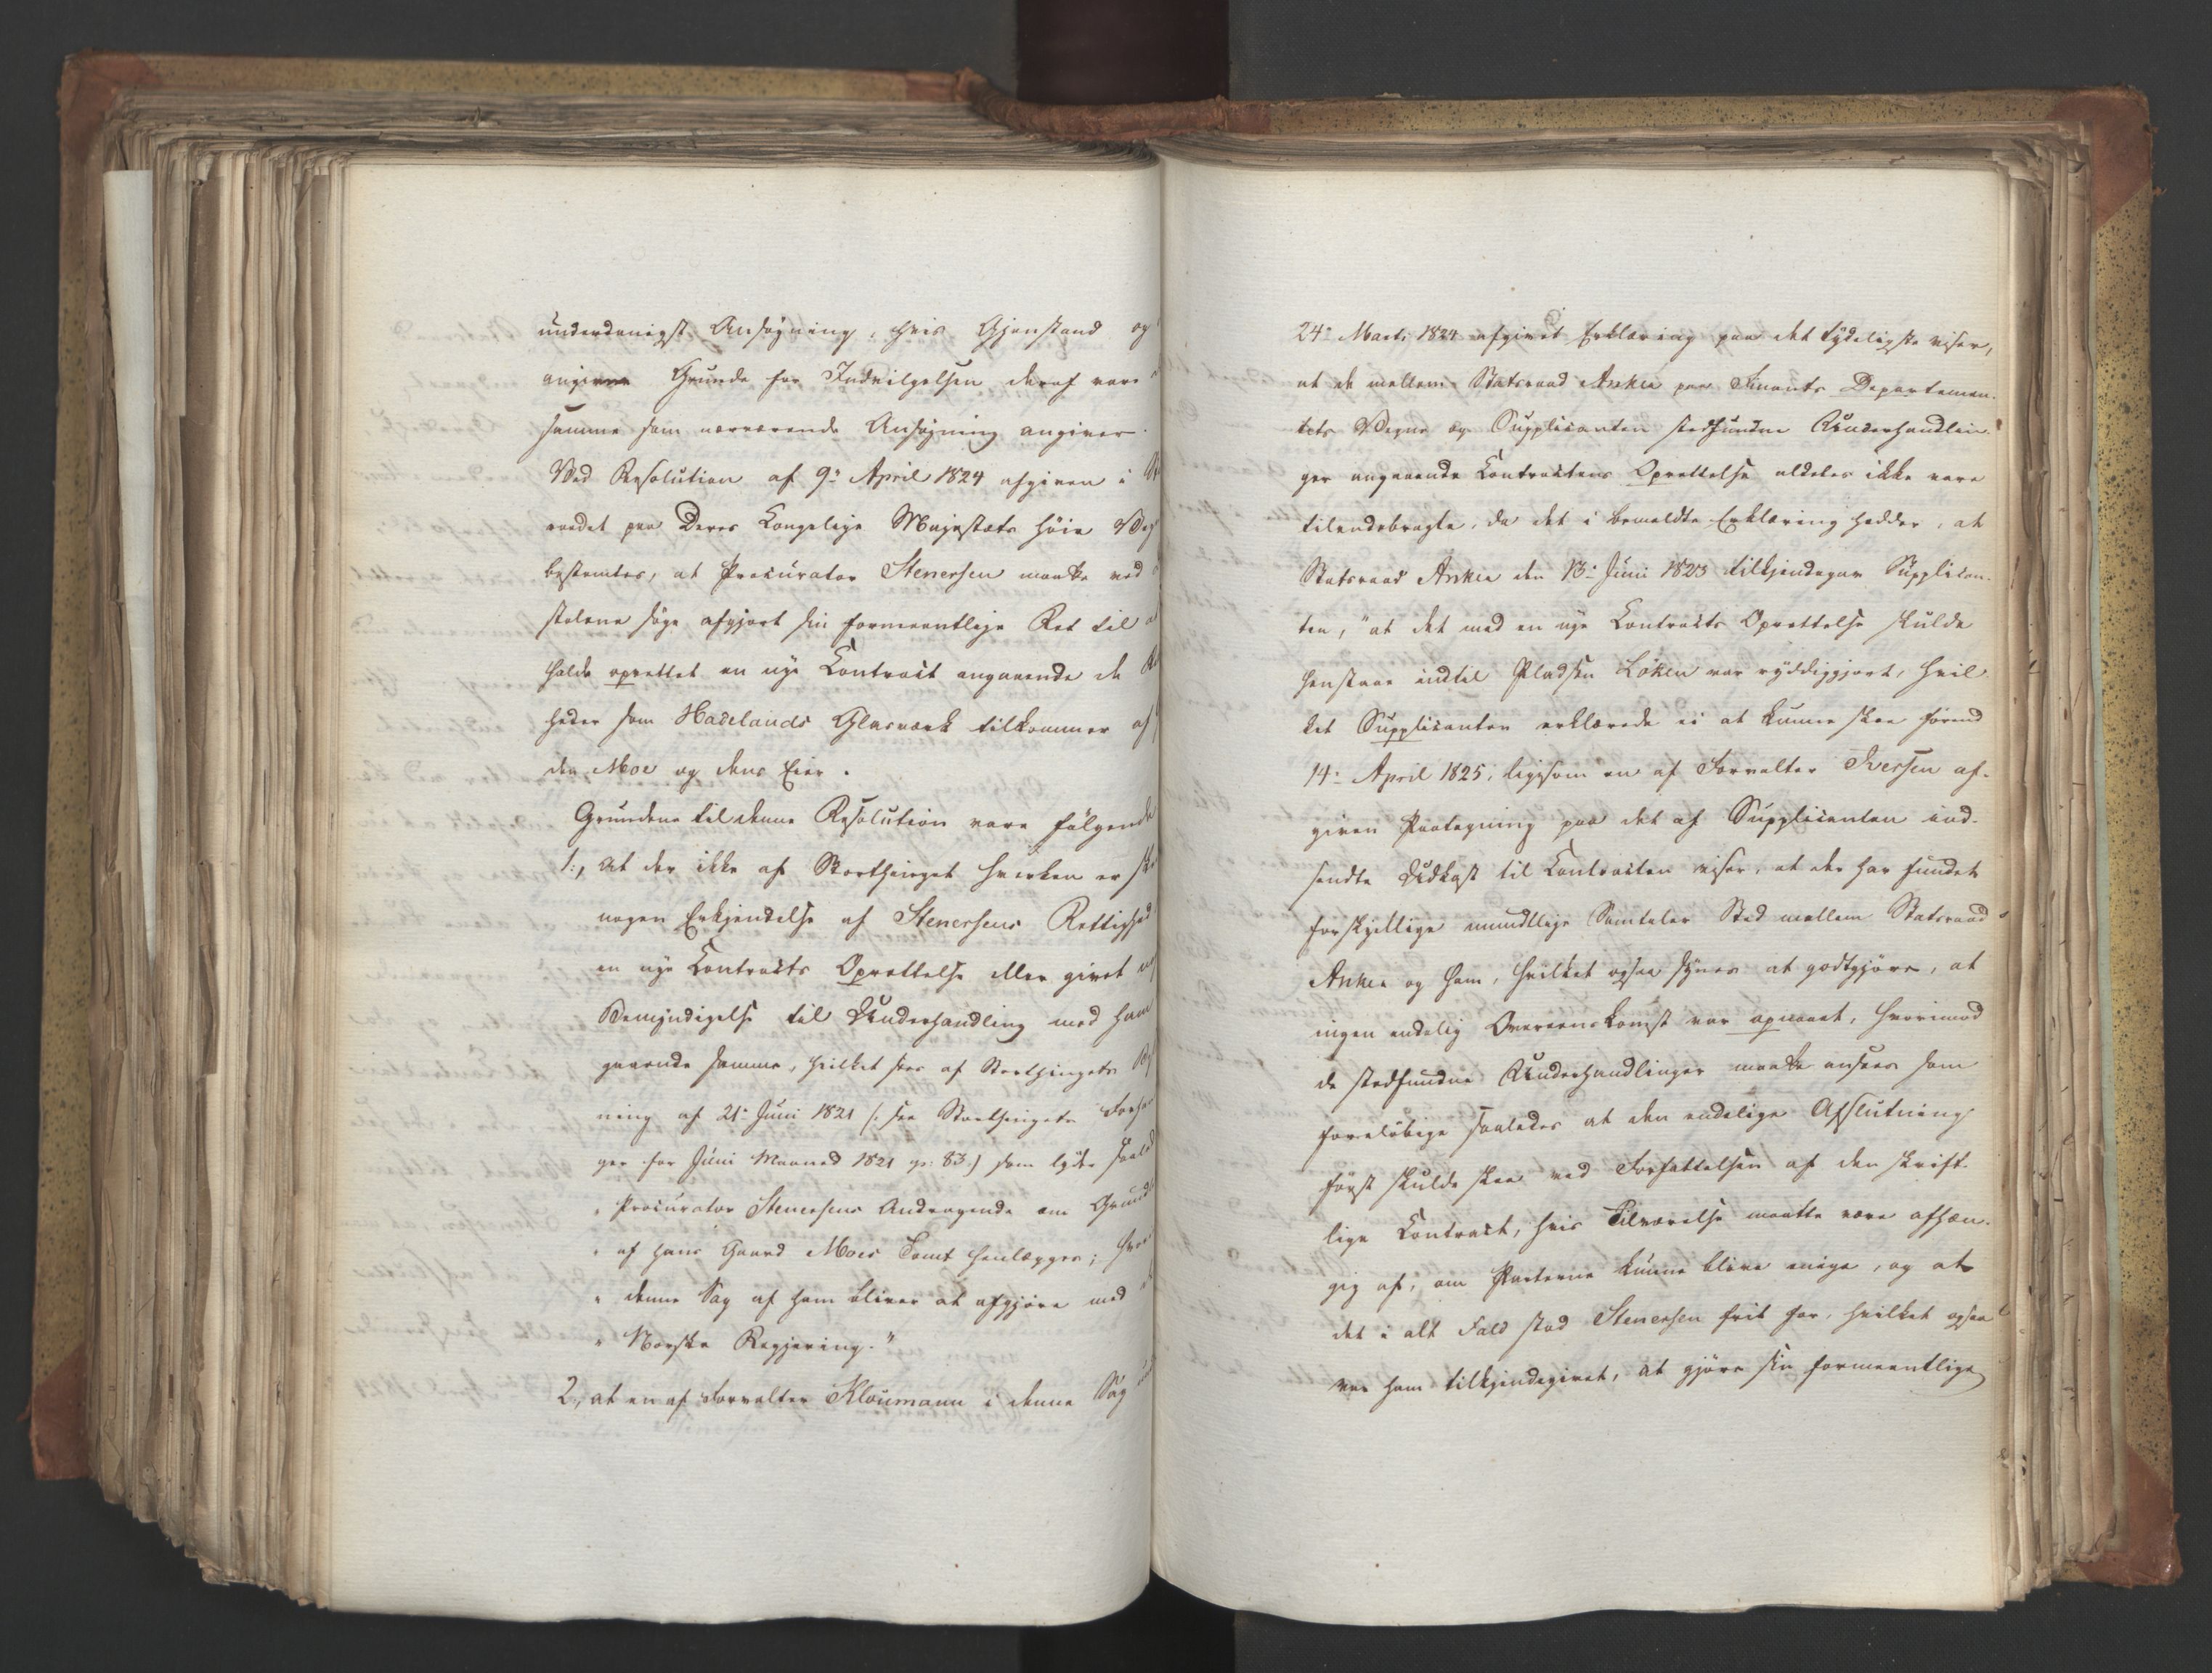 underdanigst Ansøgning, hvis Gjenstand og
angivne Grunde for Indvilgelsen deraf vare
samme som nærværende Ansøgning angiver.
Ved Resolution af 9de April 1824 afgiven i
raadet paa Deres Kongelige Majestæts höie
bestemtes, at Procurator Stenersen maatte ved
stolene söge afgjort sin formeentlige Ret til
holde oprettet en nye Contract angaaende de
heder som Hadelands Glasværk tilkommer af
den Moe og dens Eier.
Grundene til denne Resolution vare fölgende
1:, at der ikke af Storthinget hverken er
nogen Erkjendelse af Stenersens Rettighed
en nye Contracts Oprettelse eller givet
Bemyndigelse til Underhandling med ham
gaaende samme, hvilket sees af Storthingets
ning af 21de Juni 1821 /: see Storthingets
ger for Juni Maaned 1821 p: 83:/ som lyder
" Procurator Stenersens Andragende om
" af hans Gaard Moes Tomt henlægges;
" denne Sag af ham bliver at afgjöre med
" Norske Regjering."
2, at en af Forvalter Kloumann i denne Sag
24de Marts 1824 afgivet Erklæring paa det tydeligste viser,
at de mellem Statsraad Anker paa Finants Departemen-
tets Vegne og Supplicanten stedfundne Underhandlin-
ger angaaende Contractens Oprettelse aldeles ikke vare
tilendebragte, da det i bemeldte Erklæring hedder, at
Statsraad Anker den 13de Juni 1823 tilkjendegav Supplican-
ten, "at det med en nye Contracts Oprettelse skulde
henstaae indtil Pladsen Löken var ryddiggjort, hvil-
ket Supplicanten erklærede ei at kunne skee förend
14de April 1825, ligesom en af Forvalter Iversen af-
given Paategning paa det af Supplicanten ind-
sendte Udkast til Contracten viser, at der har fundet
forskjellige mundtlige Samtaler Sted mellem Statsraad
Anker og ham, hvilket ogsaa synes at godtgjöre, at
ingen endelig Overeenskomst var opnaaet, hvorimod
de stedfundne Underhandlinger maatte ansees som
forelöbige saaledes at den endelige Afslutning
först skulde skee ved Forfattelsen af den skrift-
lige Contract, hvis Tilværelse maatte være afhæn-
gig af, om Parterne kunne blive enige, og at
det i alt Fald stod Stenersen frit for, hvilket ogsaa
var ham tilkjendegivet, at gjöre sin formeentlige